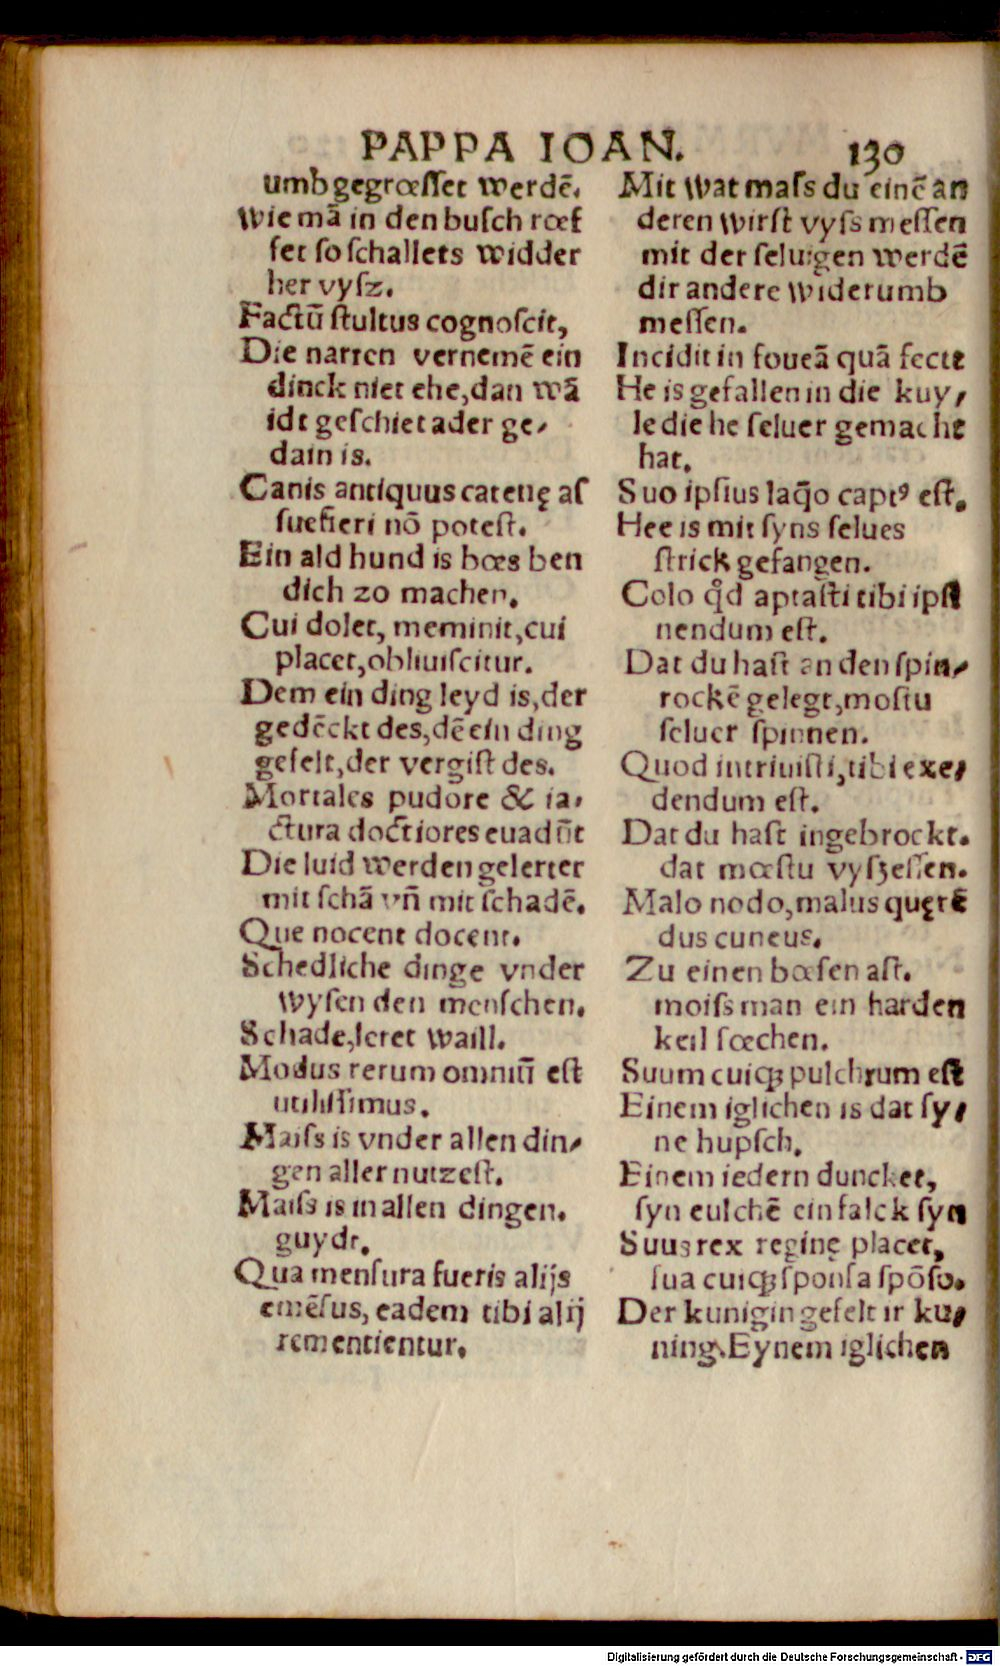 PAPPA IOAN. 130
umb gegrœſſet werdē.
Wie mā in den buſch rœf
fet ſo ſchallets widder
her vyſz.
Factū ſtultus cognoſcit,
Die narren vernemē ein
dinck niet ehe, dan wā
idt geſchiet ader ge⸗
dain is.
Canis antiquus catenę aſ
ſuefieri nō poteſt.
Ein ald hund is bœs ben
dich zo machen.
Cui dolet, meminit, cui
placet, obliuiſcitur.
Dem ein ding leyd is, der
gedēckt des, dē ein ding
gefelt, der vergiſt des.
Mortales pudore & ia⸗
ctura doctiores euadūt
Die luid werden gelerter
mit ſchā vñ mit ſchadē.
Que nocent docent.
Schedliche dinge vnder
wyſen den menſchen.
Schade, leret waill.
Modus rerum omniū eſt
utiliſſimus.
Maiſs is vnder allen din⸗
gen aller nutzeſt.
Maiſs is in allen dingen.
guydt.
Qua menſura fueris alijs
emēſus, eadem tibi alij
rementientur.
Mit wat maſs du einē an
deren wirſt vyſs meſſen
mit der ſeluigen werdē
dir andere widerumb
meſſen.
Incidit in foueā quā fecit
He is gefallen in die kuy⸗
le die he ſeluer gemacht
hat.
Suo ipſius laq̄o captꝰ eſt.
Hee is mit ſyns ſelues
ſtrick gefangen.
Colo qd̵ aptaſti tibi ipſi
nendum eſt.
Dat du haſt an den ſpin⸗
rockē gelegt, moſtu
ſeluer ſpinnen.
Quod intriuiſti, tibi exe⸗
dendum eſt.
Dat du haſt ingebrockt.
dat mœſtu vyſzeſſen.
Malo nodo, malus quęrē
dus cuneus.
Zu einen bœſen aſt.
moiſs man ein harden
keil ſœchen.
Suum cuiqꝫ pulchrum eſt
Einem iglichen is dat ſy⸗
ne hupſch.
Einem iedern duncket,
ſyn eulchē ein falck ſyn
Suus rex reginę placet,
ſua cuiqꝫ ſponſa ſpōſo.
Der kunigin gefelt ir ku⸗
ning. Eynem iglichen
Digitalisierung gefördert durch die Deutsche Forschungsgemeinschaft - DFG